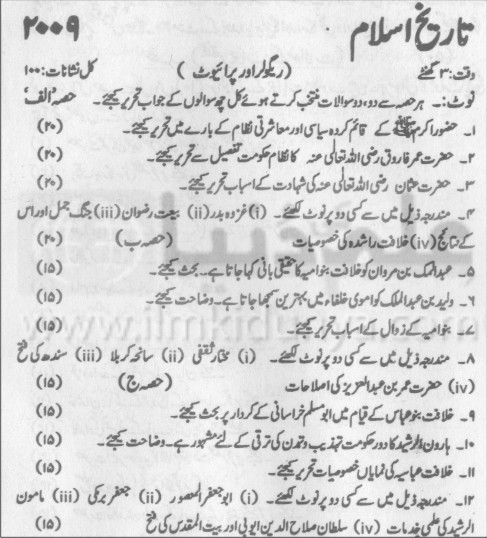 تاریخ اسلام ۲۰۰۹
وقت: ۳ گھنٹے (ریگولر اور پرائیوٹ) کل نشانات: ۱۰۰
نوٹ:۔ ہر حصہ سے دو، دو سوالات منتخب کرتے ہوئے کل چھ سوالوں کے جواب تحریر کیجئے۔ حصہ ’الف‘
۱۔ حضور اکرم ﷺ کے قائم کردہ سیاسی اور معاشرتی نظام کے بارے میں تحریر کیجئے۔ (۲۰)
۲۔ حضرت عمر فاروق رضی اللہ تعالٰی عنہ کا نظام حکومت تفصیل سے تحریر کیجئے۔ (۲۰)
۳۔ حضرت عثمان رضی اللہ تعالٰی عنہ کی شہادت کے اسباب تحریر کیجئے۔ (۲۰)
۴۔ مندرجہ ذیل میں سے کسی دو پر نوٹ لکھئے۔ (i) غزوہ بدر (ii) بیعت رضوان (iii) جنگ جمل اور اس
کے نتائج (iv) خلافت راشدہ کی خصوصیات (۲۰) (حصہ ب)
۵۔ عبدالملک بن مروان کو خلافت بنو امیہ کا حقیقی بانی کہا جاتا ہے۔ بحث کیجئے۔ (۱۵)
۶۔ ولید بن عبدالملک کو اموی خلفاء میں بہترین سمجھا جاتا ہے۔ وضاحت کیجئے۔ (۱۵)
۷۔ بنو امیہ کے زوال کے اسباب تحریر کیجئے۔ (۱۵)
۸۔ مندرجہ ذیل میں سے کسی دو پر نوٹ لکھئے۔ (i) مختار ثقفی (ii) سانحہ کربلا (iii) سندھ کی فتح
(iv) حضرت عمر بن عبدالعزیز کی اصلاحات (۱۵) (حصہ ج)
۹۔ خلافت بنو عباس کے قیام میں ابو مسلم خراسانی کے کردار پر بحث کیجئے۔ (۱۵)
۱۰۔ ہارون الرشید کا دور حکومت تہذیب و تمدن کی ترقی کے لئے مشہور ہے۔ وضاحت کیجئے۔ (۱۵)
۱۱۔ خلافت عباسیہ کی نمایاں خصوصیات تحریر کیجئے۔ (۱۵)
۱۲۔ مندرجہ ذیل میں سے کسی دو پر نوٹ لکھئے۔ (i) ابو جعفر المنصور (ii) جعفر برمکی (iii) مامون
الرشید کی علمی خدمات (iv) سلطان صلاح الدین ایوبی اور بیت المقدس کی فتح (۱۵)
علم کی دنیا
www.ilmkidunya.com